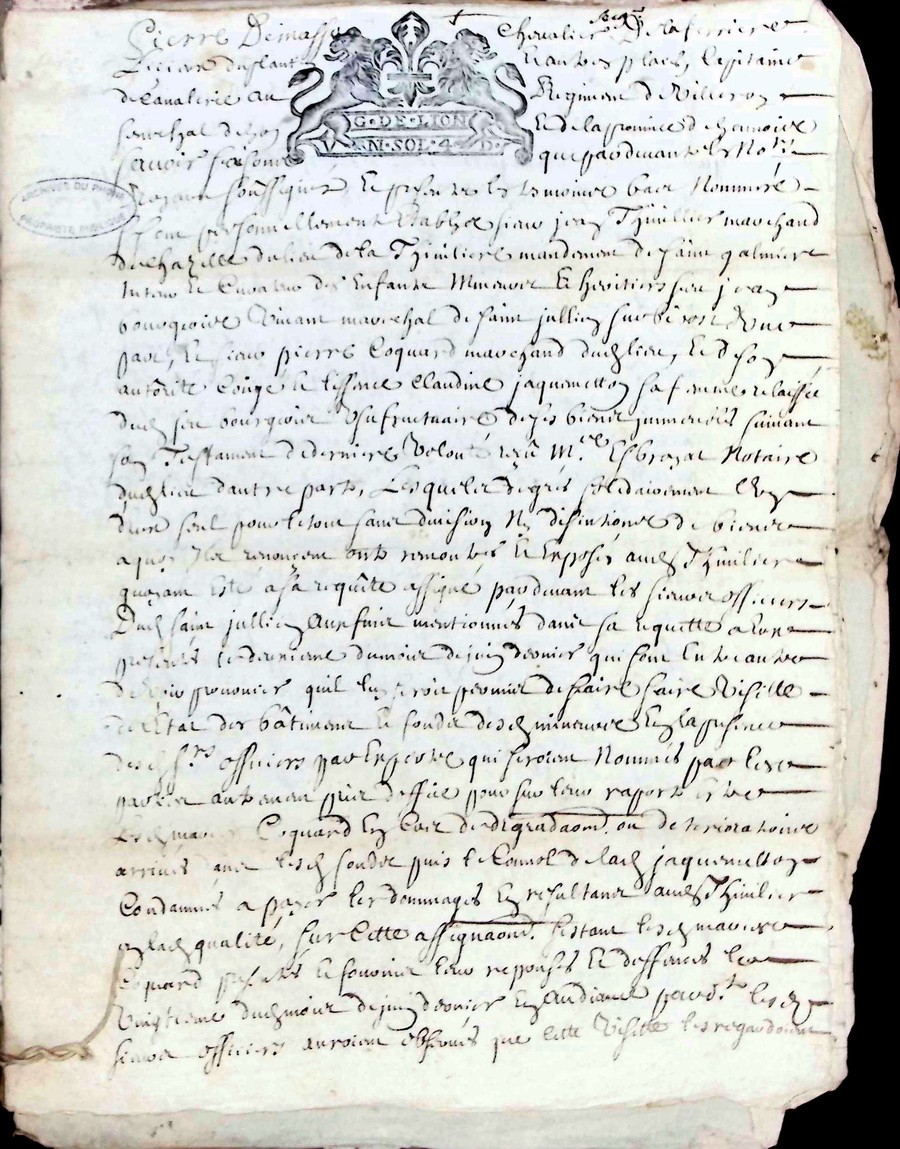 Pierre Dimasso Chevalier Seigr De la ferriere
et autres places, Capitaine
de Cavalerie au Regiment de Villeroy
senechal de Lyon Et de la province de
G·DE·LION
N·SOL·4·D·
scavoir faisons que pardevant le Nore
Royaux soussigné Et presents les temoins bas Nommés
furent personnellement Establys sieur jean Thivillier marchand
de chazelle du lieu de la Thiviliere mandement de saint galmier
tuteur Et Curateur des Enfants Mineurs Et heritiers feu jean
bourgeois Vivant marechal de saint jullien sur bibost d'une
part, Et sieur pierre Coquard marchand dudt lieu, Et de son
autorité Congé Et lissence Claudine jaquemetton sa femme relaissée
dudt feu bourgeois Usufructuaire de ses biens immeubles suivant
son Testament de derniere Volonté reçû Me Notaire
dudt lieu d'autre part, Lesquels de gré solidairement
d'eux seul pour le tout sans division Ny disscution de biens
a quoy Ils renoncent ont remontrés Et Exposés
quayant esté a sa requête assigné pardevant les sieurs officiers
Dudt saint jullien Aux fins mentionnés dans sa requette
presenté le dernier du mois de juin dernier qui sont Entre autres
de Voir prononcer quil luy seroit permis de faire faire Visitte
de l'Etat des bâtiments Et fonds desdt mineurs En la presence
desdt srs officiers par Experts qui seroient Nommés par les
parties autrement pris d'office pour sur leur raport Estre
Lesdt mariés Coquard En Cas de degradaon. ou deterioratoires
arrivés aux lesdt fonds puis le Convol de ladt jaquemetton
Condamnés a payer les dommages En resultants audt sr Thivilier
En ladt qualité, sur Cette assignaon. Estant lesdt mariés
Coquard presentés Et fournir leur reponses Et deffences le
Vingtieme dudt mois de juin dernier En Audiance pardt. lesdt
sieurs officiers auroient observés que Cette Visitte les regardoient
ARCHIVES DU RHONE
PROPRIETE PUBLIQUE